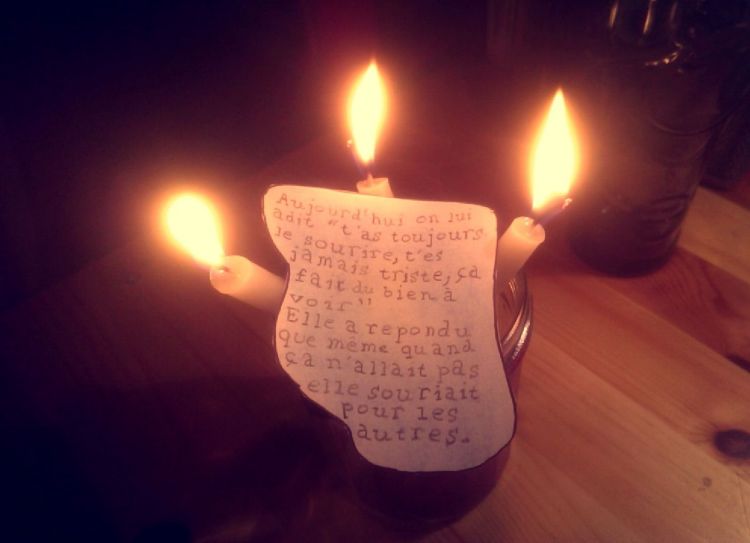 Aujourd'hui on lui
adit "t'as toujours
le sourire, t'es
jamais triste, ça
fait du bien à
voir"
Elle a repondu
que même quand
ça n'allait pas
elle souriait
pour les
autres.